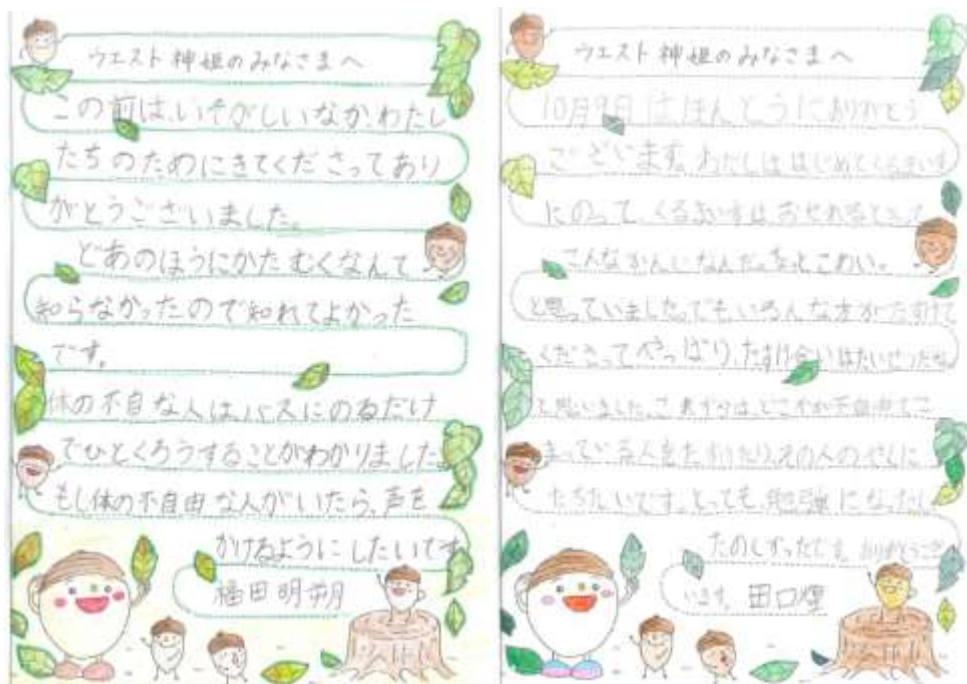 ウエスト神姫のみなさまへ
この前は、いそがしいなか、わたし
たちのためにきてくださってあり
がとうございました。
どあのほうにかたむくなんて
知らなかったので知れてよかった
です。
体の不自な人は、バスにのるだけ
でひとくろうすることがわかりました。
もし体の不自由な人がいたら、声を
かけるようにしたいです
福田明
ウエスト神姫のみなさまへ
10月9日はほんとうにありがとう
ございます。わたしははじめてくるまいす
にのって、くるまいすは、おせれるとって
こんなかんじなんだ。ちょっとこわい。
と思っていました。でも、いろんな方がたすけて
くださってやっぱり、たすけ合いはたいせつだな
と思いました。これからは、どこかが不自由でこ
まっている人をたすけたり、その人のやくに
たちたいです。とっても、勉強になったし
たのしかったです。ありがとうござ
います。田口